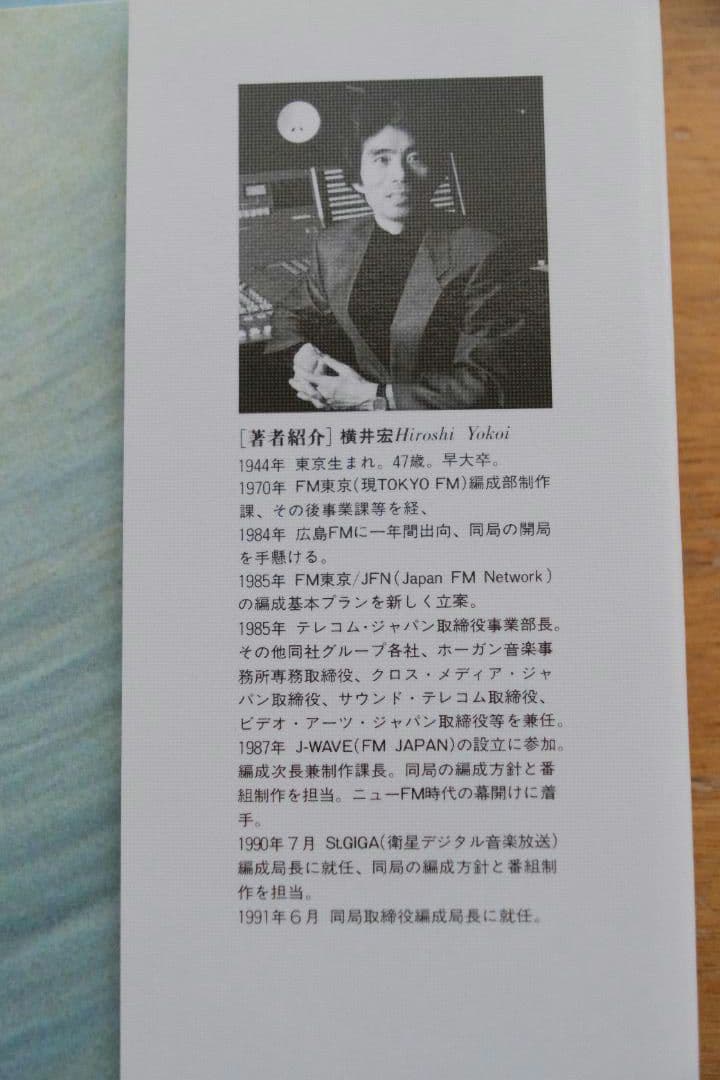 [著者紹介] 横井宏 Hiroshi Yokoi
1944年 東京生まれ。47歳。早大卒。
1970年 FM東京(現TOKYO FM)編成部制作
課、その後事業課等を経、
1984年 広島FMに一年間出向、同局の開局
を手懸ける。
1985年 FM東京/JFN(Japan FM Network)
の編成基本プランを新しく立案。
1985年 テレコム・ジャパン取締役事業部長。
その他同社グループ各社、ホーガン音楽事
務所専務取締役、クロス・メディア・ジャ
パン取締役、サウンド・テレコム取締役、
ビデオ・アーツ・ジャパン取締役等を兼任。
1987年 J-WAVE(FM JAPAN)の設立に参加。
編成次長兼制作課長。同局の編成方針と番
組制作を担当。ニューFM時代の幕開けに着
手。
1990年7月 St.GIGA(衛星デジタル音楽放送)
編成局長に就任、同局の編成方針と番組制
作を担当。
1991年6月 同局取締役編成局長に就任。